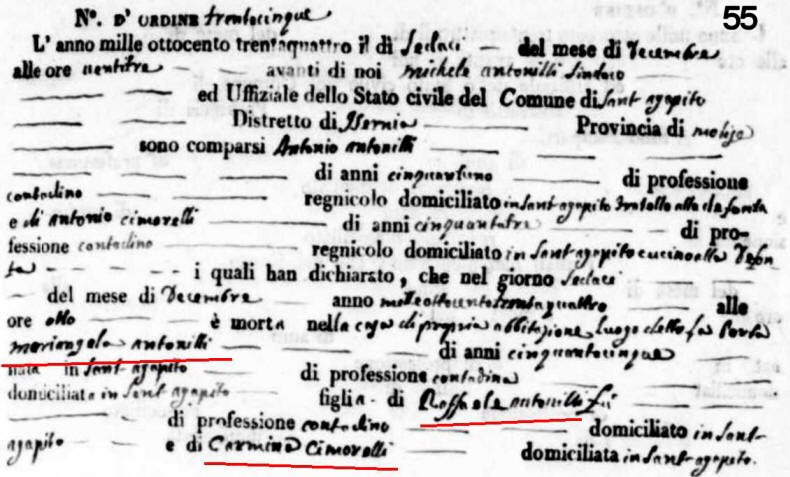 55
N°. D' ORDINE trentacinque
L' anno mille ottocento trentaquattro il dì sedaci del mese di Decembre
alle ore ventitre avanti di noi Michele Antonilli Sindaco
ed Uffiziale dello Stato civile del Comune di Sant agapito
Distretto di Isernia Provincia di molise
sono comparsi Antonio antonilli
di anni cinquantuno di professione
contadino regnicolo domiciliato in Sant agapito fratello alla defonta
e di antonio cimorelli di anni cinquantatre di pro-
fessione contadino regnicolo domiciliato in Sant agapito cucino alla Defon
ta i quali han dichiarato, che nel giorno sedaci
del mese di Decembre anno milleottocentotrentaquattro alle
ore otto è morta nella casa di propria abbitazione luogo detto la Porta
mariangela antonilli di anni cinquantacinque
nata in Sant agapito di professione contadina
domiciliata in Sant agapito figlia di Raffaele antonilli fù
di professione contadino domiciliato in Sant-
agapito e di Carmina Cimorelli domiciliata in Sant agapito.